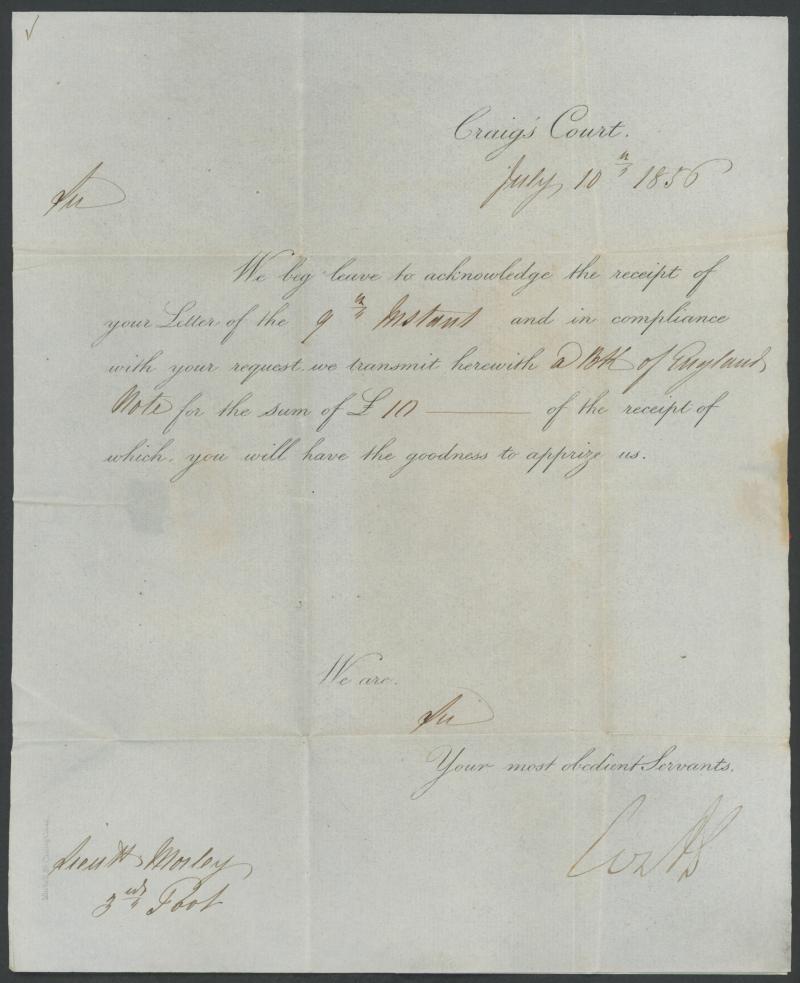 Craig's Court.
July 10th 1856
Sir
We beg leave to acknowledge the receipt of
your Letter of the 9th Instant and in compliance
with your request we transmit herewith a Bk of England
Note for the sum of £ 10 of the receipt of
which, you will have the goodness to apprize us.
We are.
Sir
Your most obedient Servants.
Lieut Mosley
3rd Foot